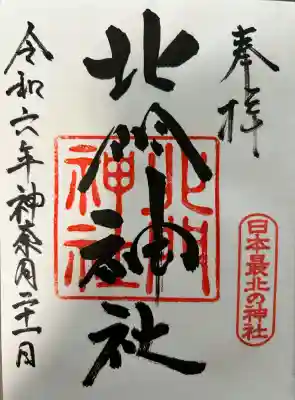 奉拝
日本最北の神社
北門神社
北門神社
令和六年神奈月二十一日